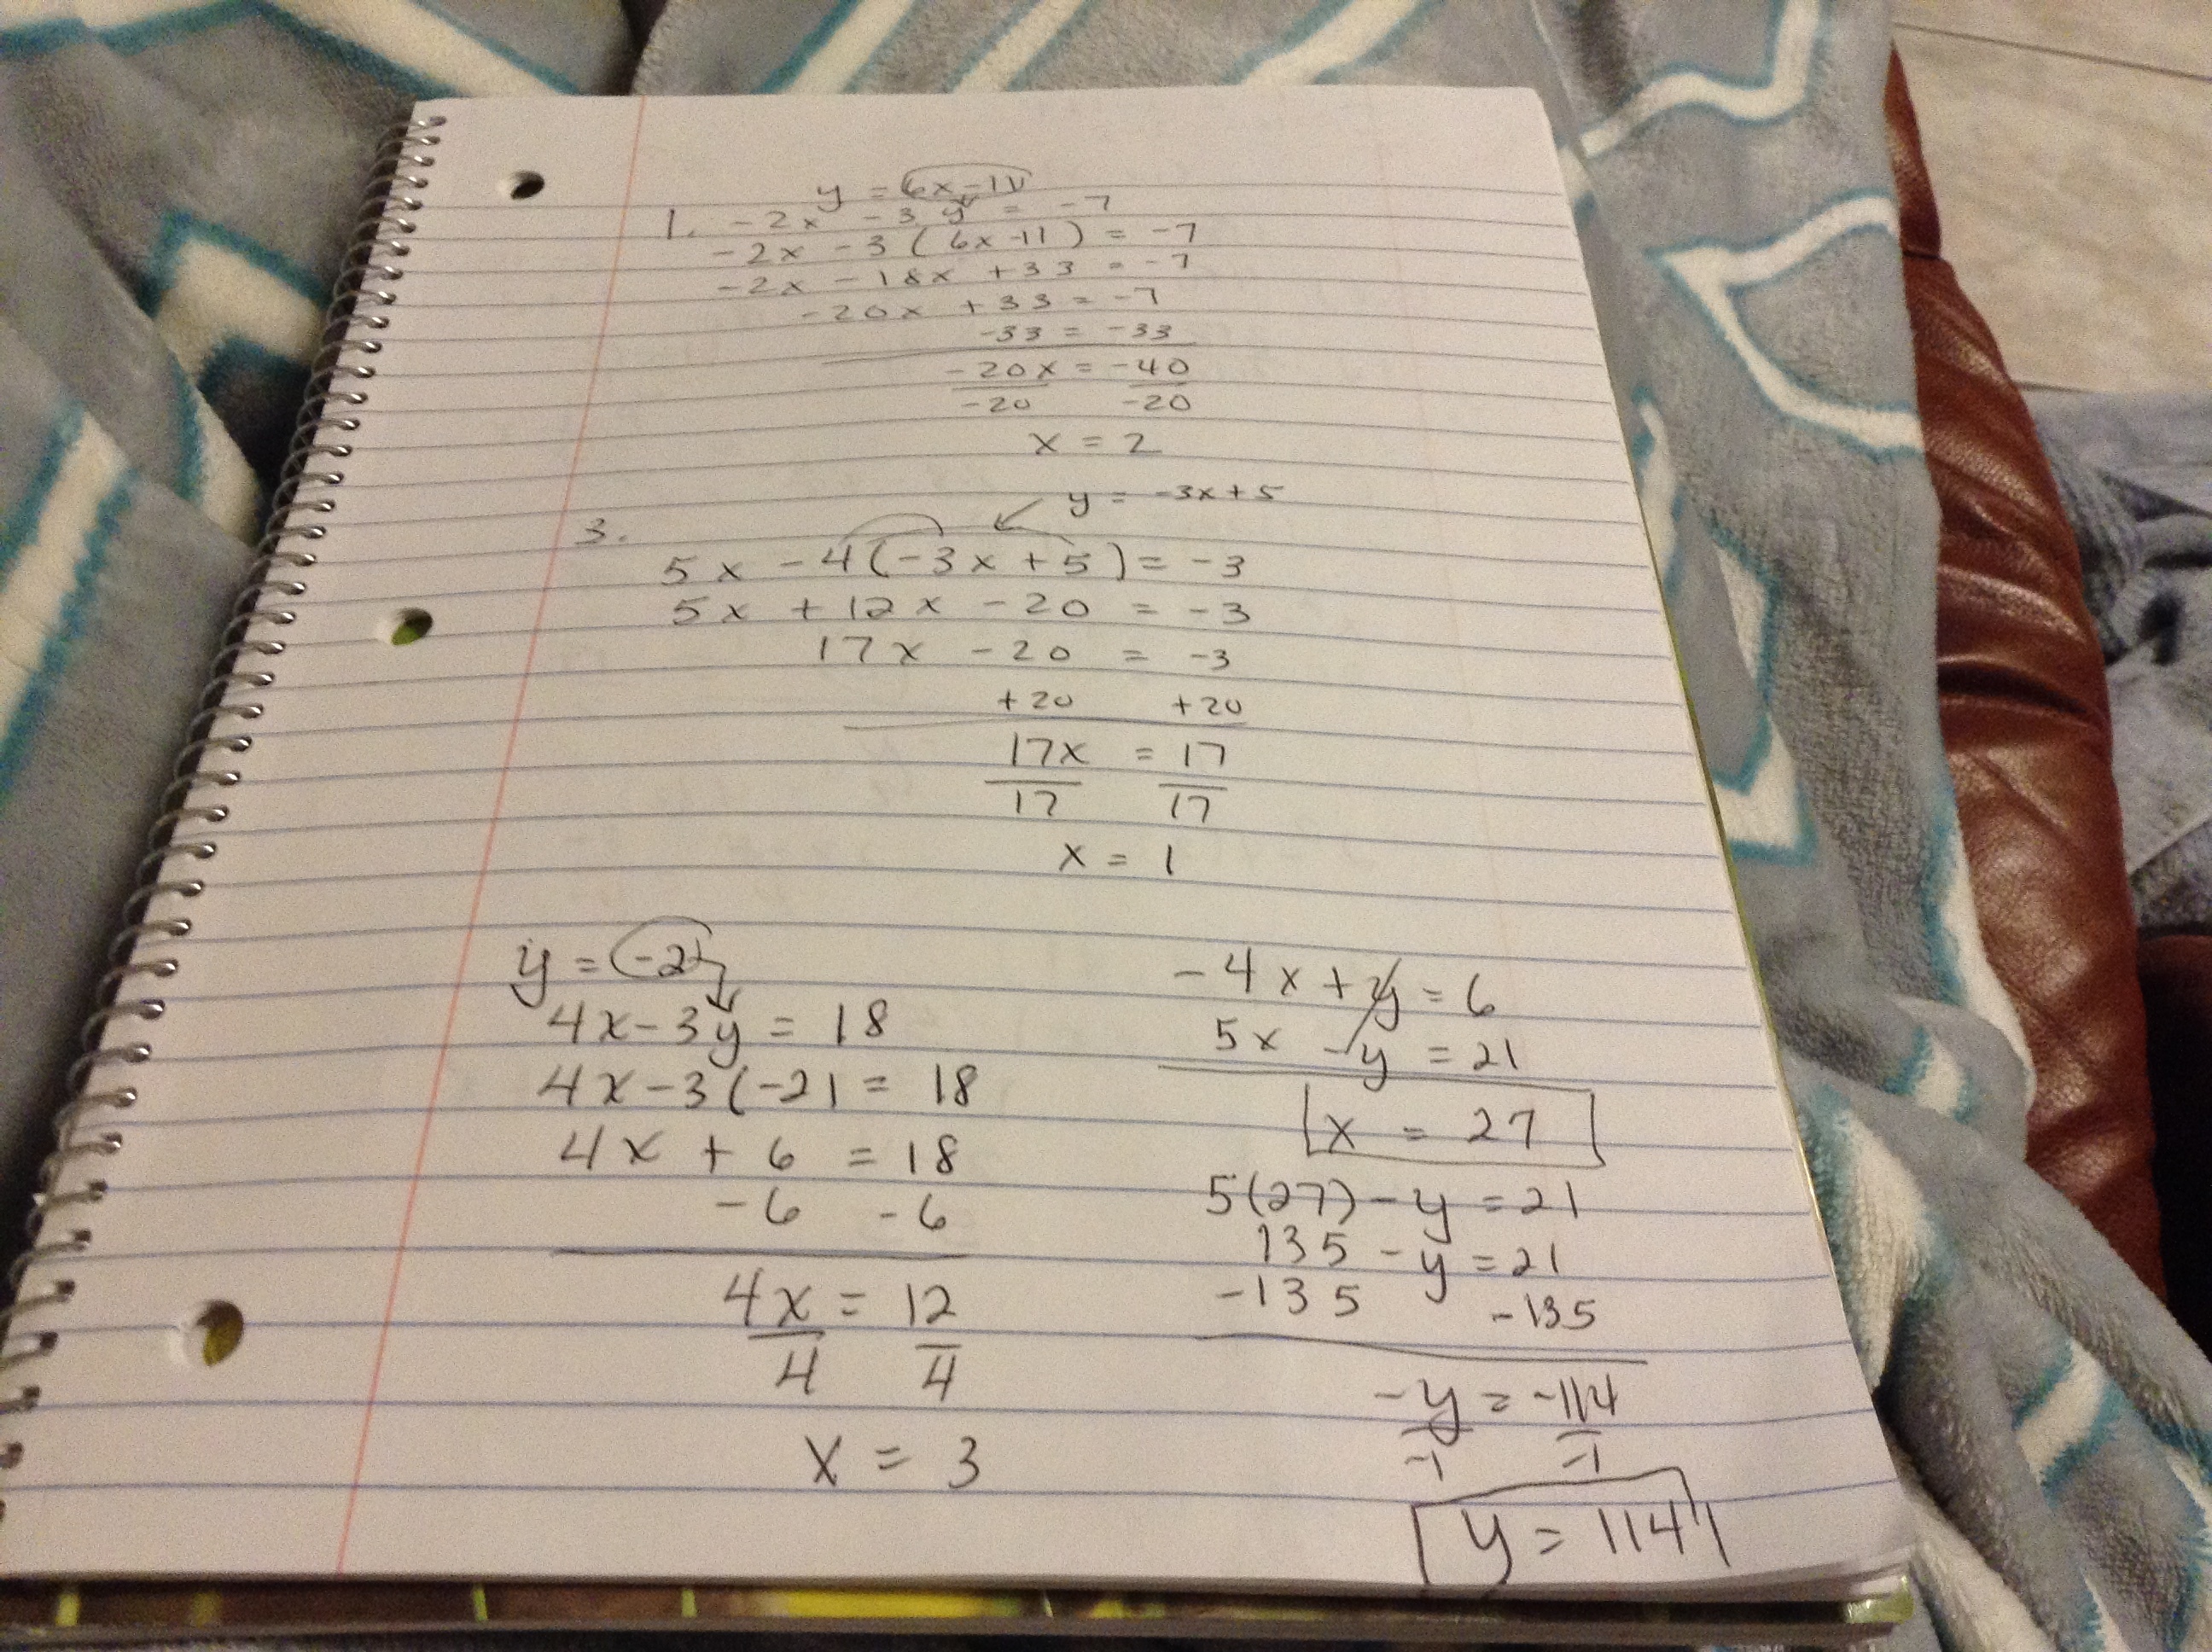 y = 6x-11
1. -2x - 3y = -7
-2x - 3(6x-11) = -7
-2x - 18x + 33 = -7
-20x + 33 = -7
-33 = -33
-20x = -40
-20 -20
x = 2
y = -3x+5
3.
5x - 4(-3x + 5) = -3
5x + 12x - 20 = -3
17x - 20 = -3
+20 +20
17x = 17
17 17
x = 1
y = -2
4x-3y = 18
4x-3(-2) = 18
4x + 6 = 18
-6 -6
4x = 12
4 4
x = 3
-4x + y = 6
5x - y = 21
x = 27
5(27) - y = 21
135 - y = 21
-135 -135
-y = -114
-1 -1
y = 114